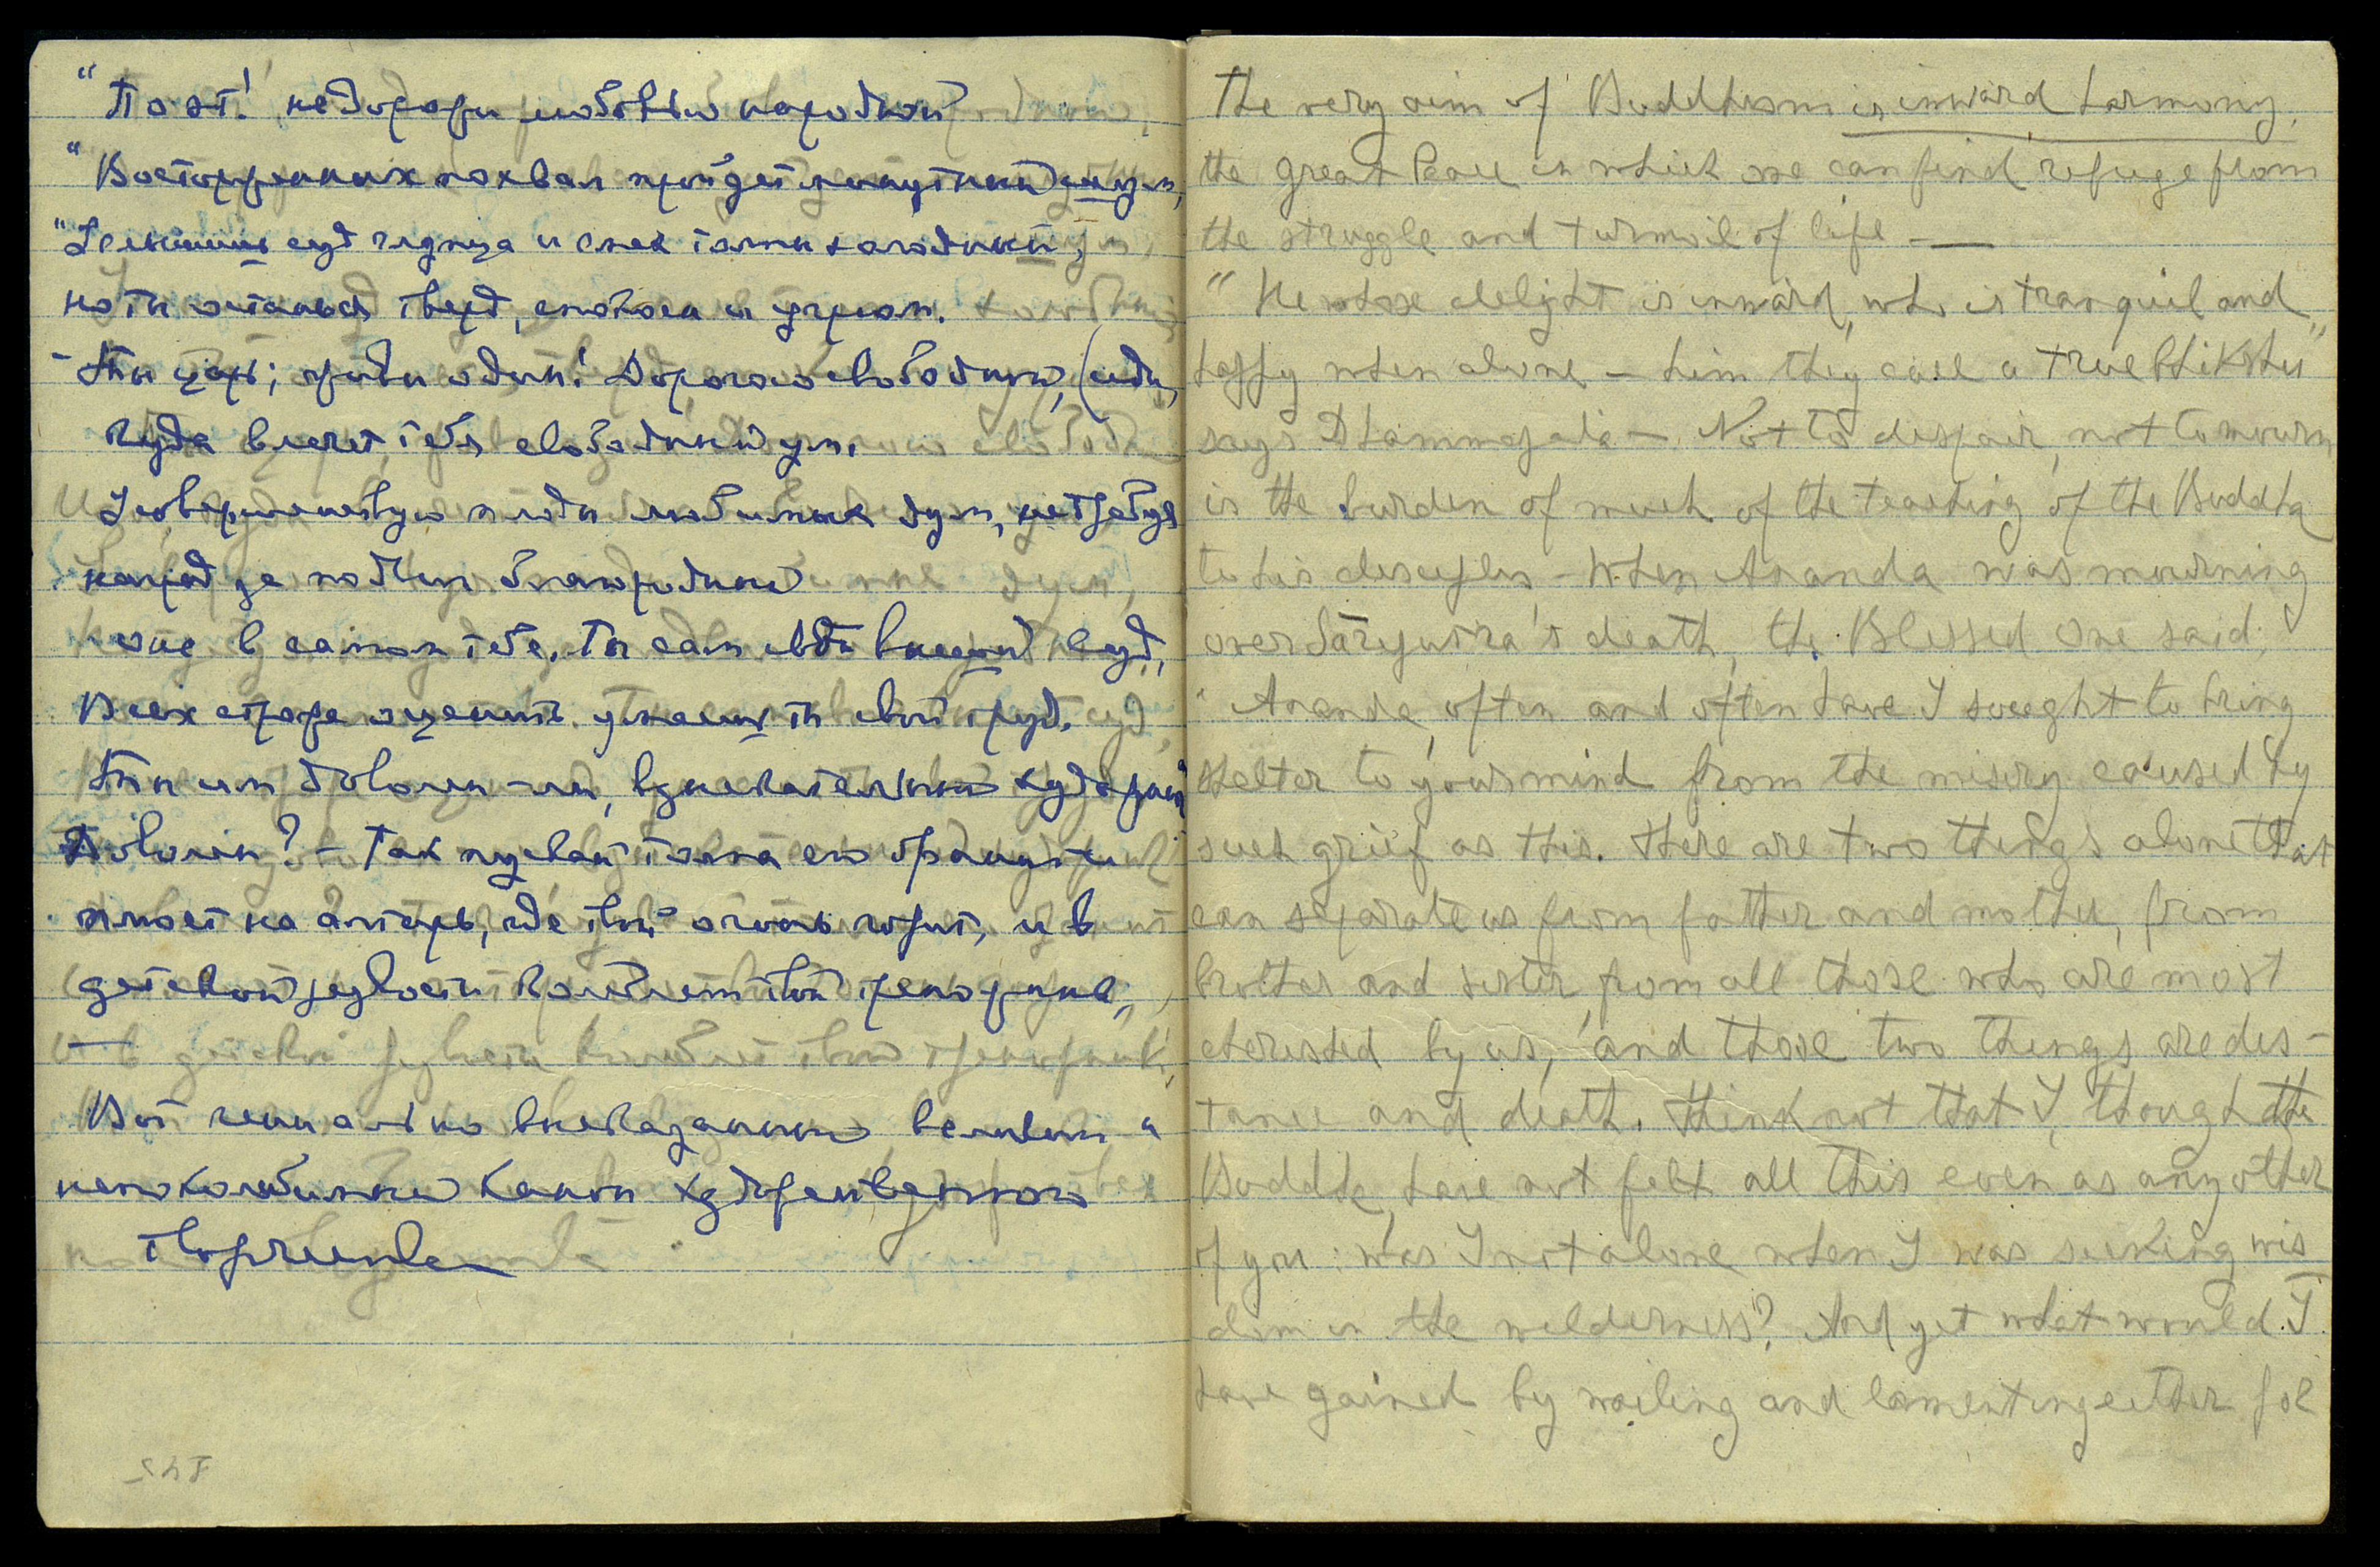 "Поэт! не дорожи любовью народной
"Восторженных похвал пройдет минутный шум,
"Услышишь суд глупца и смех толпы холодный,
но ты останься тверд, спокоен и угрюм.
Ты царь; живи один! Дорогою свободною, (иди,
куда влечет тебя свободный ум.
Усовершенствуя плоды любимых дум, не требуя
наград за подвиг благородный
они в самом тебе. Ты сам свой высший суд,
Всех строже оценить умеешь ты свой труд.
Ты им доволен-ли, взыскательный художник
Доволен? - Так пускай толпа его бранит и
плюет на алтарь, где твой огонь горит, и в
детской резвости колеблет твой треножник,,
и в детской резвости колеблет твой треножник,
Вот гениально высказанный великий и
непоколебимый канон художественного
творчества
The very aim of Buddhism is inward harmony,
the great Peace in which one can find refuge from
the struggle and turmoil of life —
"He whose delight is inward, who is tranquil and
happy when alone – him they call a true bhikshu"
says Dhammapada – Not to despair, not to mourn
is the burden of much of the teaching of the Buddha
to his disciples – When Ananda was mourning
over Sāriputra's death, the Blessed One said;
"Ananda, often and often have I sought to bring
shelter to your mind from the misery caused by
such grief as this. There are two things alone that
can separate us from father and mother, from
brother and sister, from all those who are most
cherished by us, and those two things are dis-
tance and death. Think not that I, though the
Buddha, have not felt all this even as any other
of you: was I not alone when I was seeking wis
dom in the wilderness? And yet what would I
have gained by wailing and lamenting either for